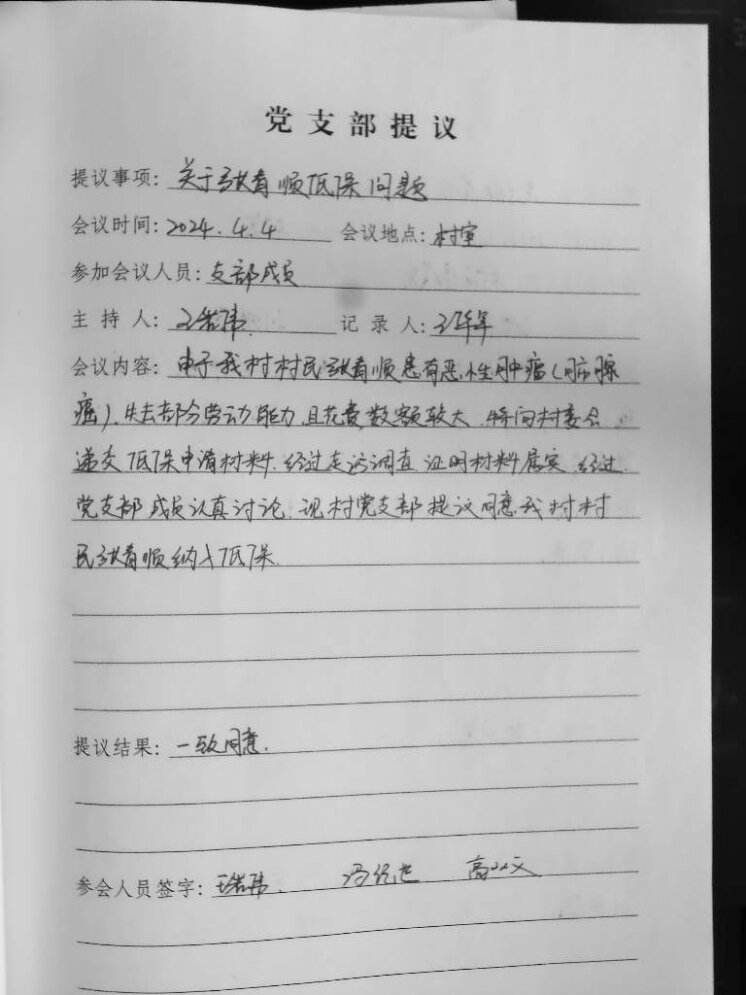 党支部提议
提议事项：关于张春顺低保问题
会议时间：2024.4.4 会议地点：村室
参加会议人员：支部成员
主持人：王岩伟 记录人：
会议内容：由于我村村民张春顺患有恶性肿瘤（前列腺
癌）.失去部分劳动能力,且花费数额较大.特向村委会.
递交低保申请材料.经过走访调查.证明材料属实.经过
党支部成员认真讨论.现村党支部提议同意我村村
民张春顺纳入低保.
提议结果：一致同意.
参会人员签字：王岩伟. 高